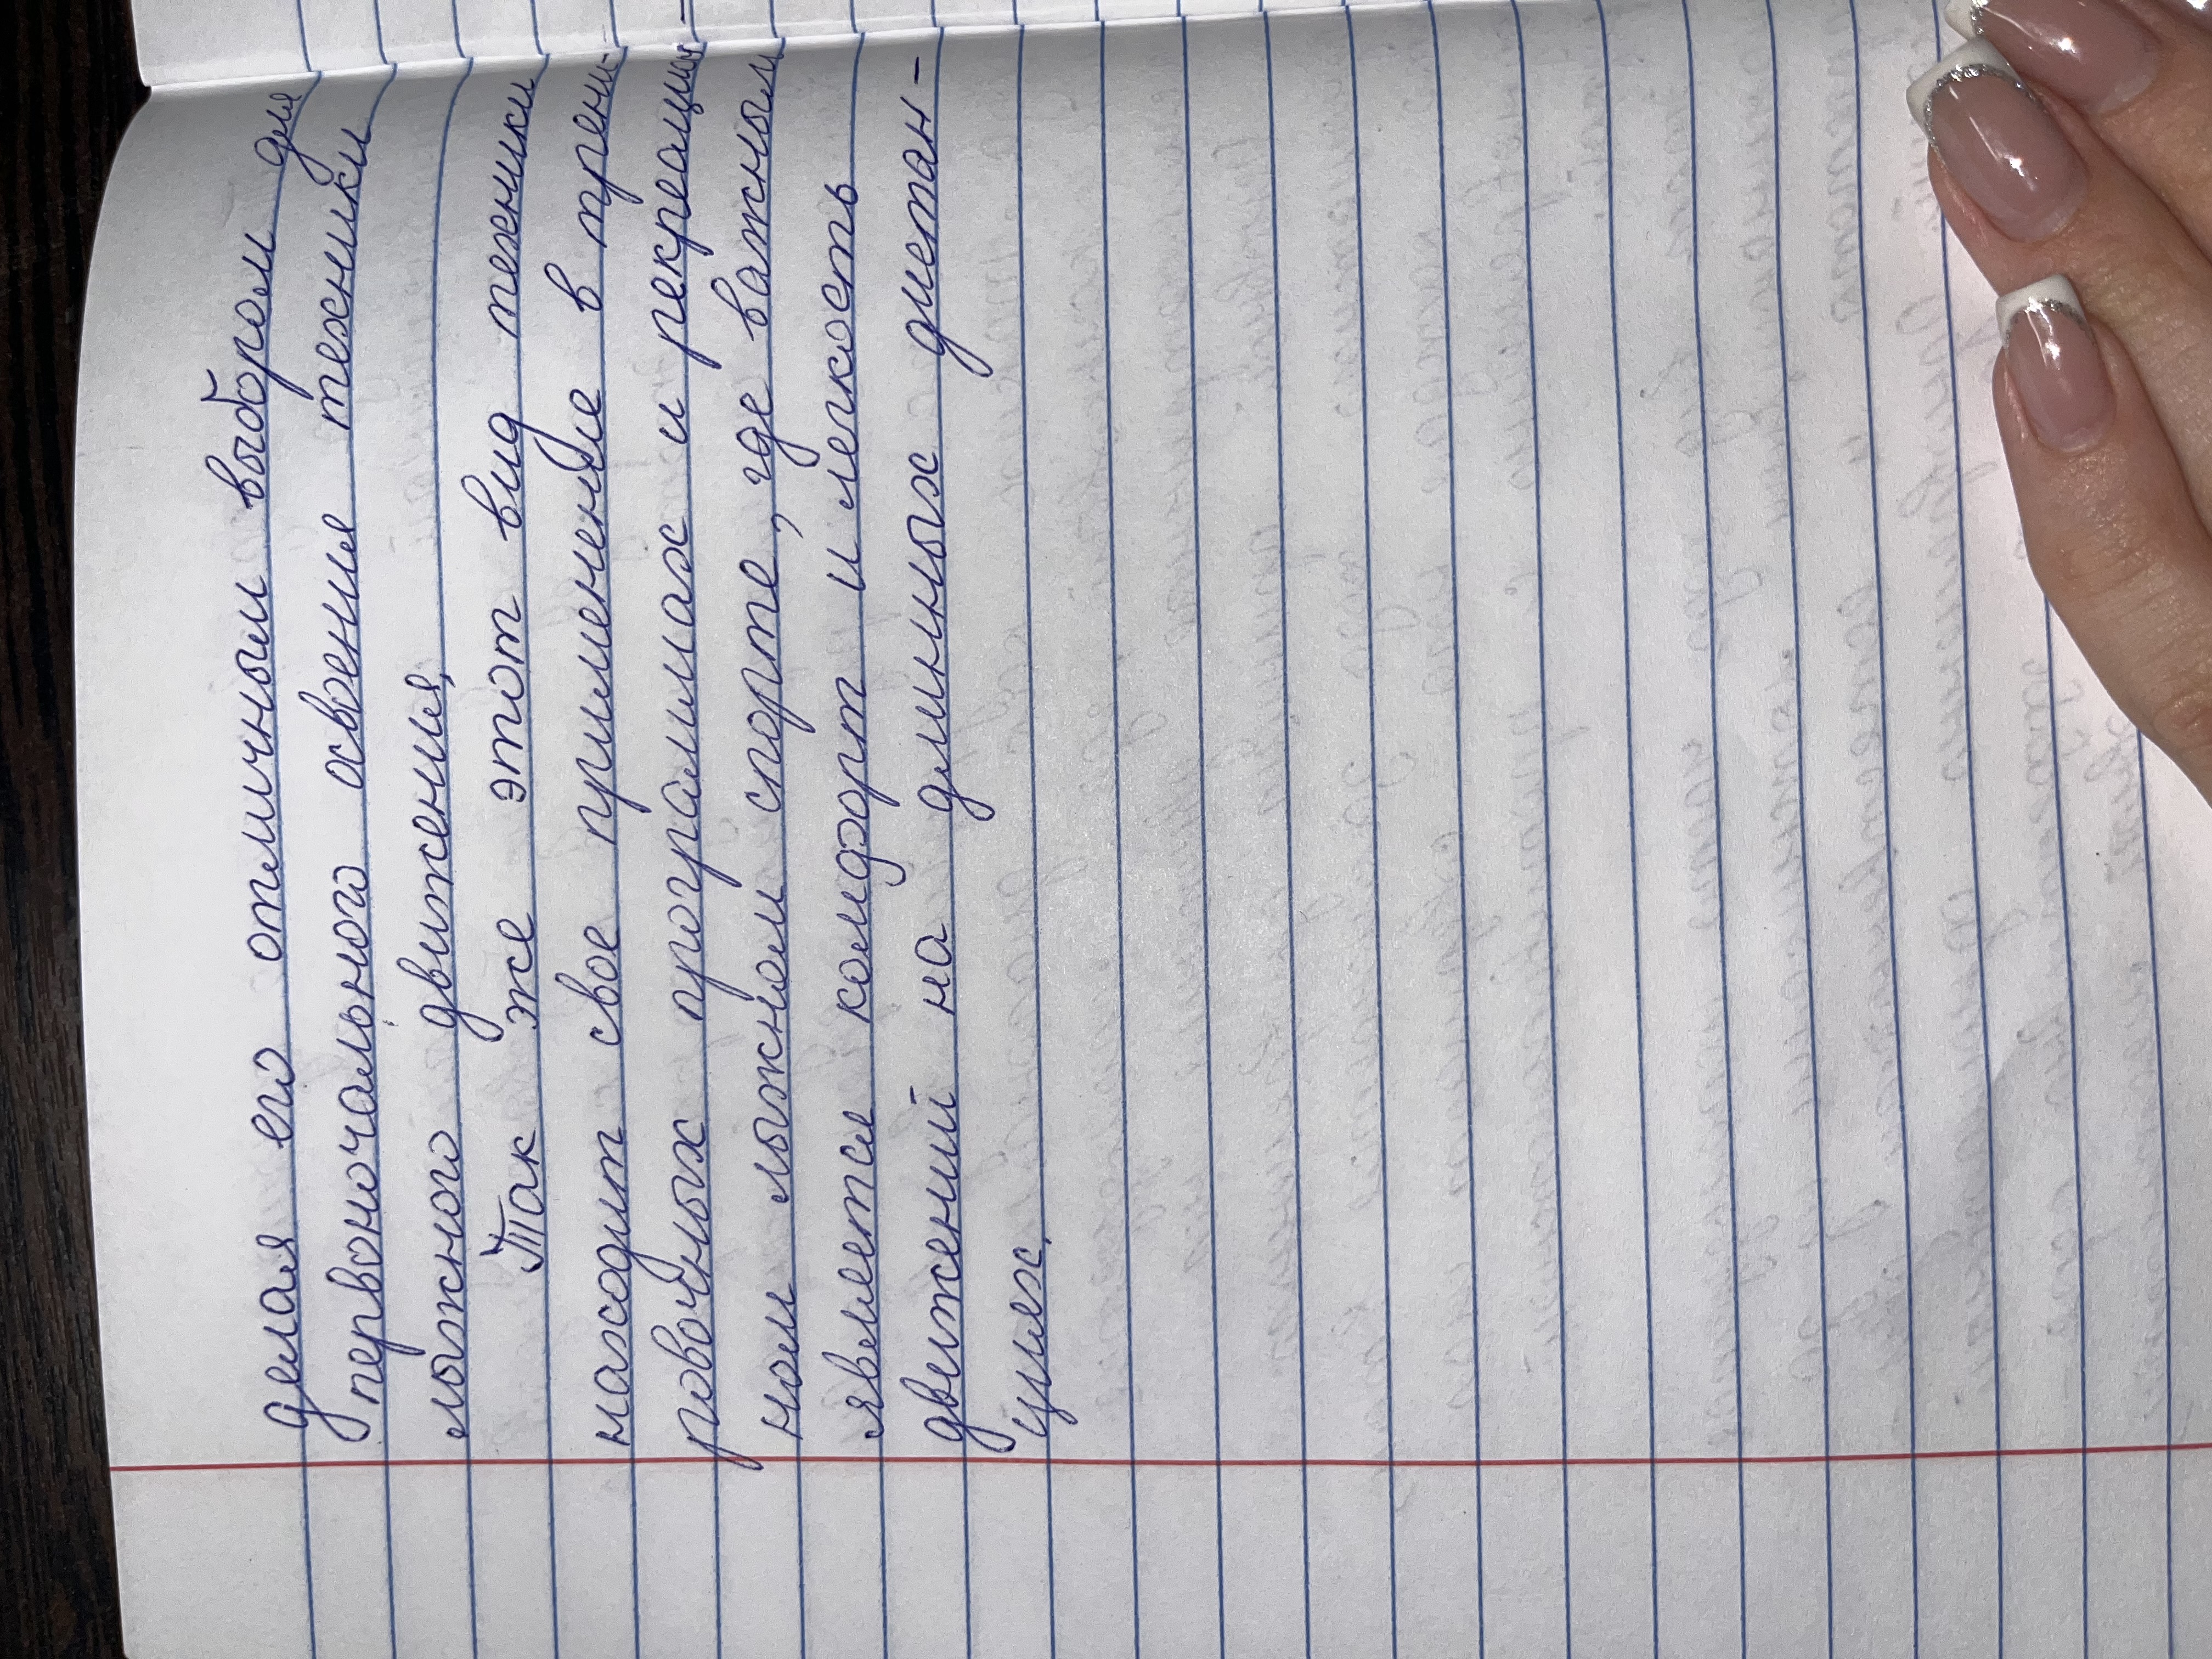 делая его отличным выбором для
первоночального освоения техники
лыжного движения.
Так же этот вид техники
находит свое применение в трени-
ровочных программах и рекреацион-
ном лыжном спорте, где важным
является комфорт и легкость
движений на длинных дистан-
циях.